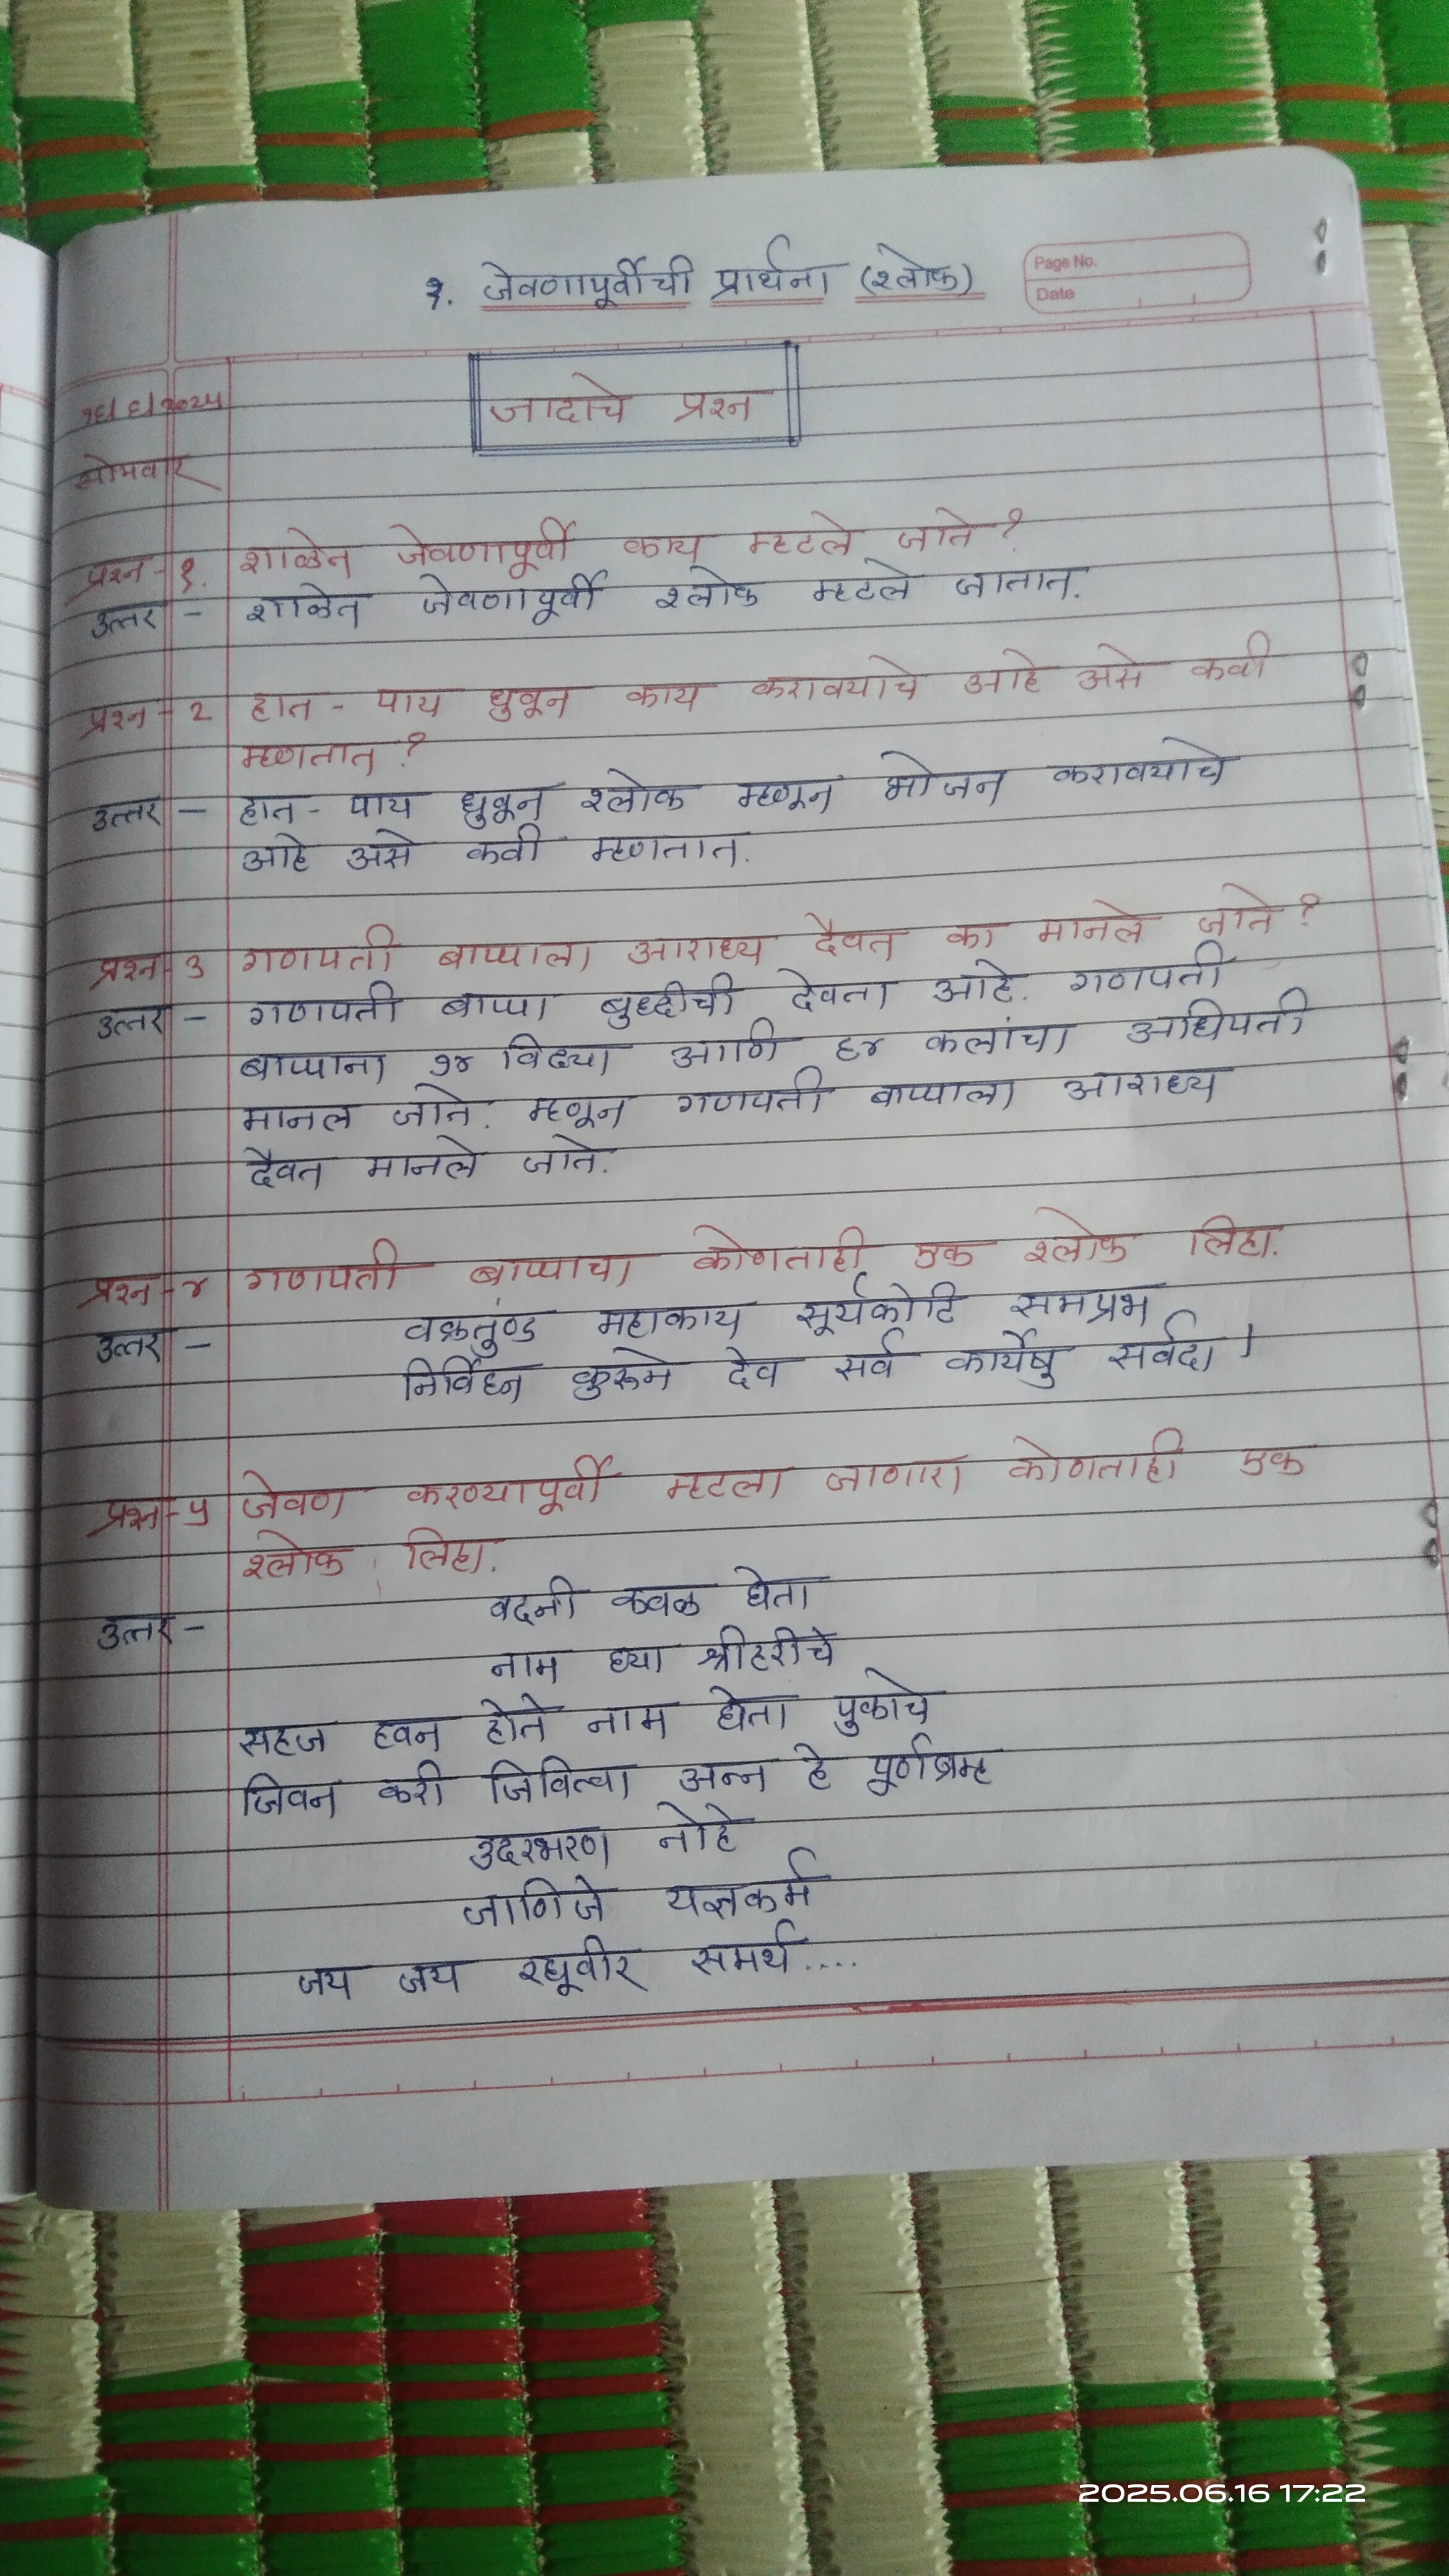 १. जेवणापूर्वीची प्रार्थना (श्लोक)
Page No.
Date
जादाचे प्रश्न
१६/६/२०२५
सोमवार
प्रश्न-१. शाळेत जेवणापूर्वी काय म्हटले जाते?
उत्तर - शाळेत जेवणापूर्वी श्लोक म्हटले जातात.
प्रश्न-२ हात-पाय धुवून काय करावयाचे आहे असे कवी
म्हणतात?
उत्तर - हात-पाय धुवून श्लोक म्हणून भोजन करावयाचे
आहे असे कवी म्हणतात.
प्रश्न-३ गणपती बाप्पाला आराध्य दैवत का मानले जाते?
उत्तर - गणपती बाप्पा बुध्दीची देवता आहे. गणपती
बाप्पाना १४ विद्या आणि ६४ कलांचा अधिपती
मानल जाते. म्हणून गणपती बाप्पाला आराध्य
दैवत मानले जाते.
प्रश्न-४ गणपती बाप्पाचा कोणताही एक श्लोक लिहा.
उत्तर - वक्रतुण्ड महाकाय सूर्यकोटि समप्रभ
निर्विघ्न कुरूमे देव सर्व कार्येषु सर्वदा।
प्रश्न-५ जेवण करण्यापूर्वी म्हटला जाणारा कोणताही एक
श्लोक लिहा.
उत्तर - वदनी कवळ घेता
नाम घ्या श्रीहरीचे
सहज हवन होते नाम घेता फुकाचे
जिवन करी जिवित्वा अन्न हे पूर्णब्रम्ह
उदरभरण नोहे
जाणिजे यज्ञकर्म
जय जय रघूवीर समर्थ....
2025.06.16 17:22